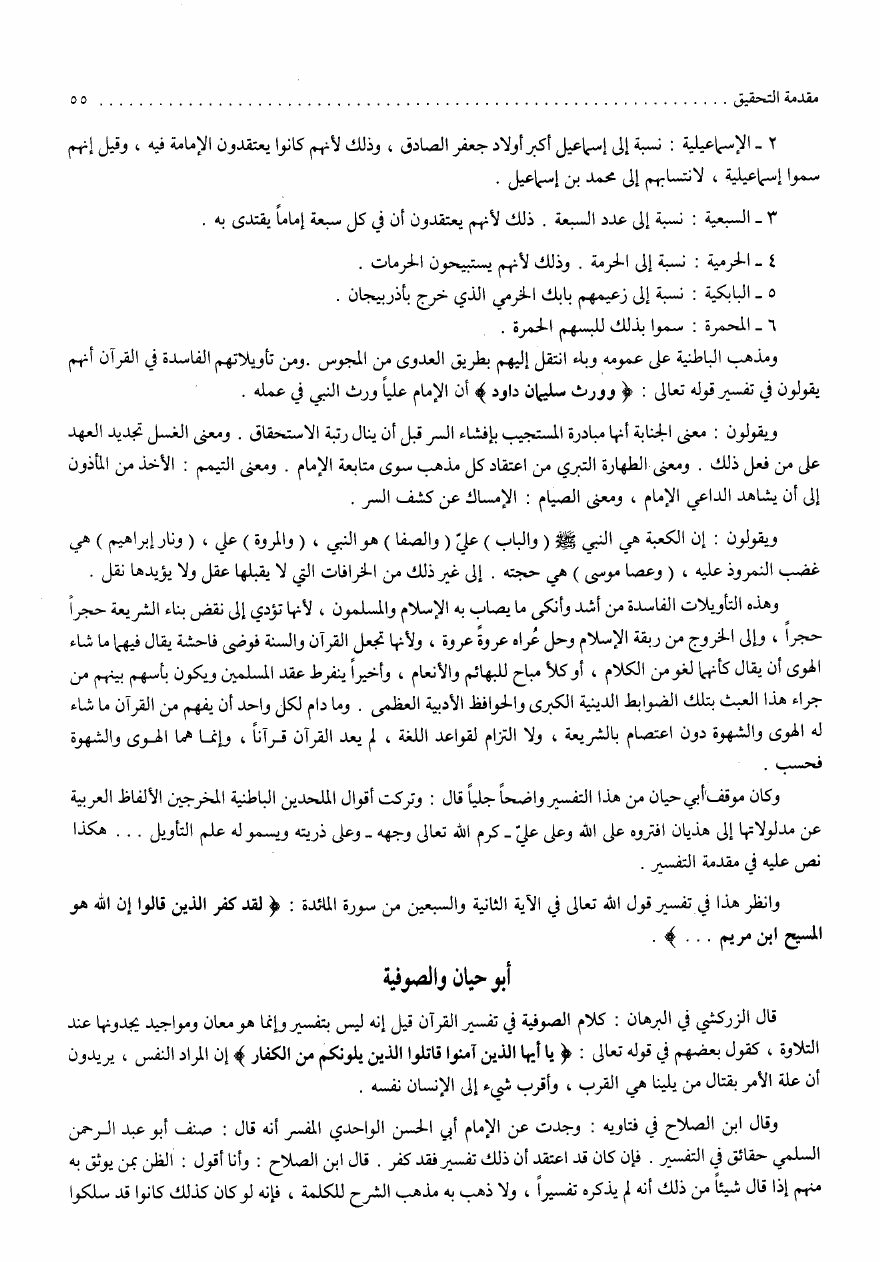 مقدمة التحقيق . . . . . . . . . . . . . . . . . . . . . . . . . . . . . . . . . . . . . . . . . . . . . . . . . . . . . . . . . . . . . . . ٥٥
٢ ـ الإسماعيلية : نسبة إلى إسماعيل أكبر أولاد جعفر الصادق ، وذلك لأنهم كانوا يعتقدون الإمامة فيه ، وقيل إنهم
سموا إسماعيلية ، لانتسابهم إلى محمد بن إسماعيل .
٣ ـ السبعية : نسبة إلى عدد السبعة . ذلك لأنهم يعتقدون أن في كل سبعة إماماً يقتدى به .
٤ ـ الحرمية : نسبة إلى الحرمة . وذلك لأنهم يستبيحون الحرمات .
٥ ـ البابكية : نسبة إلى زعيمهم بابك الخرمي الذي خرج بأذربيجان .
٦ ـ المحمرة : سموا بذلك للبسهم الحمرة .
ومذهب الباطنية على عمومه وباء انتقل إليهم بطريق العدوى من المجوس .ومن تأويلاتهم الفاسدة في القرآن أنهم
يقولون في تفسير قوله تعالى : ﴿ وورث سليمان داود ﴾ أن الإمام علياً ورث النبي في عمله .
ويقولون : معنى الجنابة أنها مبادرة المستجيب بإفشاء السر قبل أن ينال رتبة الاستحقاق . ومعنى الغسل تجديد العهد
على من فعل ذلك . ومعنى الطهارة التبري من اعتقاد كل مذهب سوى متابعة الإمام . ومعنى التيمم : الأخذ من المأذون
إلى أن يشاهد الداعي الإمام ، ومعنى الصيام : الإمساك عن كشف السر .
ويقولون : إن الكعبة هي النبي ﷺ ( والباب ) عليّ ( والصفا ) هو النبي ، ( والمروة ) علي ، ( ونار إبراهيم ) هي
غضب النمروذ عليه ، ( وعصا موسى ) هي حجته . إلى غير ذلك من الخرافات التي لا يقبلها عقل ولا يؤيدها نقل .
وهذه التأويلات الفاسدة من أشد وأنكى ما يصاب به الإسلام والمسلمون ، لأنها تؤدي إلى نقض بناء الشريعة حجراً
حجراً ، وإلى الخروج من ربقة الإسلام وحل عُراه عروةً عروة ، ولأنها تجعل القرآن والسنة فوضى فاحشة يقال فيهما ما شاء
الهوى أن يقال كأنهما لغو من الكلام ، أو كلأ مباح للبهائم والأنعام ، وأخيراً ينفرط عقد المسلمين ويكون بأسهم بينهم من
جراء هذا العبث بتلك الضوابط الدينية الكبرى والحوافظ الأدبية العظمى . وما دام لكل واحد أن يفهم من القرآن ما شاء
له الهوى والشهوة دون اعتصام بالشريعة ، ولا التزام لقواعد اللغة ، لم يعد القرآن قرآناً ، وإنما هما الهوى والشهوة
فحسب .
وكان موقف أبي حيان من هذا التفسير واضحاً جلياً قال : وتركت أقوال الملحدين الباطنية المخرجين الألفاظ العربية
عن مدلولاتها إلى هذيان افتروه على الله وعلى عليّ ـ كرم الله تعالى وجهه ـ وعلى ذريته ويسموله علم التأويل . . . هكذا
نص عليه في مقدمة التفسير .
وانظر هذا في تفسير قول الله تعالى في الآية الثانية والسبعين من سورة المائدة : ﴿ لقد كفر الذين قالوا إن الله هو
المسيح ابن مريم . . . ﴾ .
أبو حيان والصوفية
قال الزركشي في البرهان : كلام الصوفية في تفسير القرآن قيل إنه ليس بتفسير وإنما هو معان ومواجيد يجدونها عند
التلاوة ، كقول بعضهم في قوله تعالى : ﴿ يا أيها الذين آمنوا قاتلوا الذين يلونكم من الكفار ﴾ إن المراد النفس ، يريدون
أن علة الأمر بقتال من يلينا هي القرب ، وأقرب شيء إلى الإنسان نفسه .
وقال ابن الصلاح في فتاويه : وجدت عن الإمام أبي الحسن الواحدي المفسر أنه قال : صنف أبو عبد الرحمن
السلمي حقائق في التفسير . فإن كان قد اعتقد أن ذلك تفسير فقد كفر . قال ابن الصلاح : وأنا أقول : الظن بمن يوثق به
منهم إذا قال شيئاً من ذلك أنه لم يذكره تفسيراً ، ولا ذهب به مذهب الشرح للكلمة ، فإنه لو كان كذلك كانوا قد سلكوا